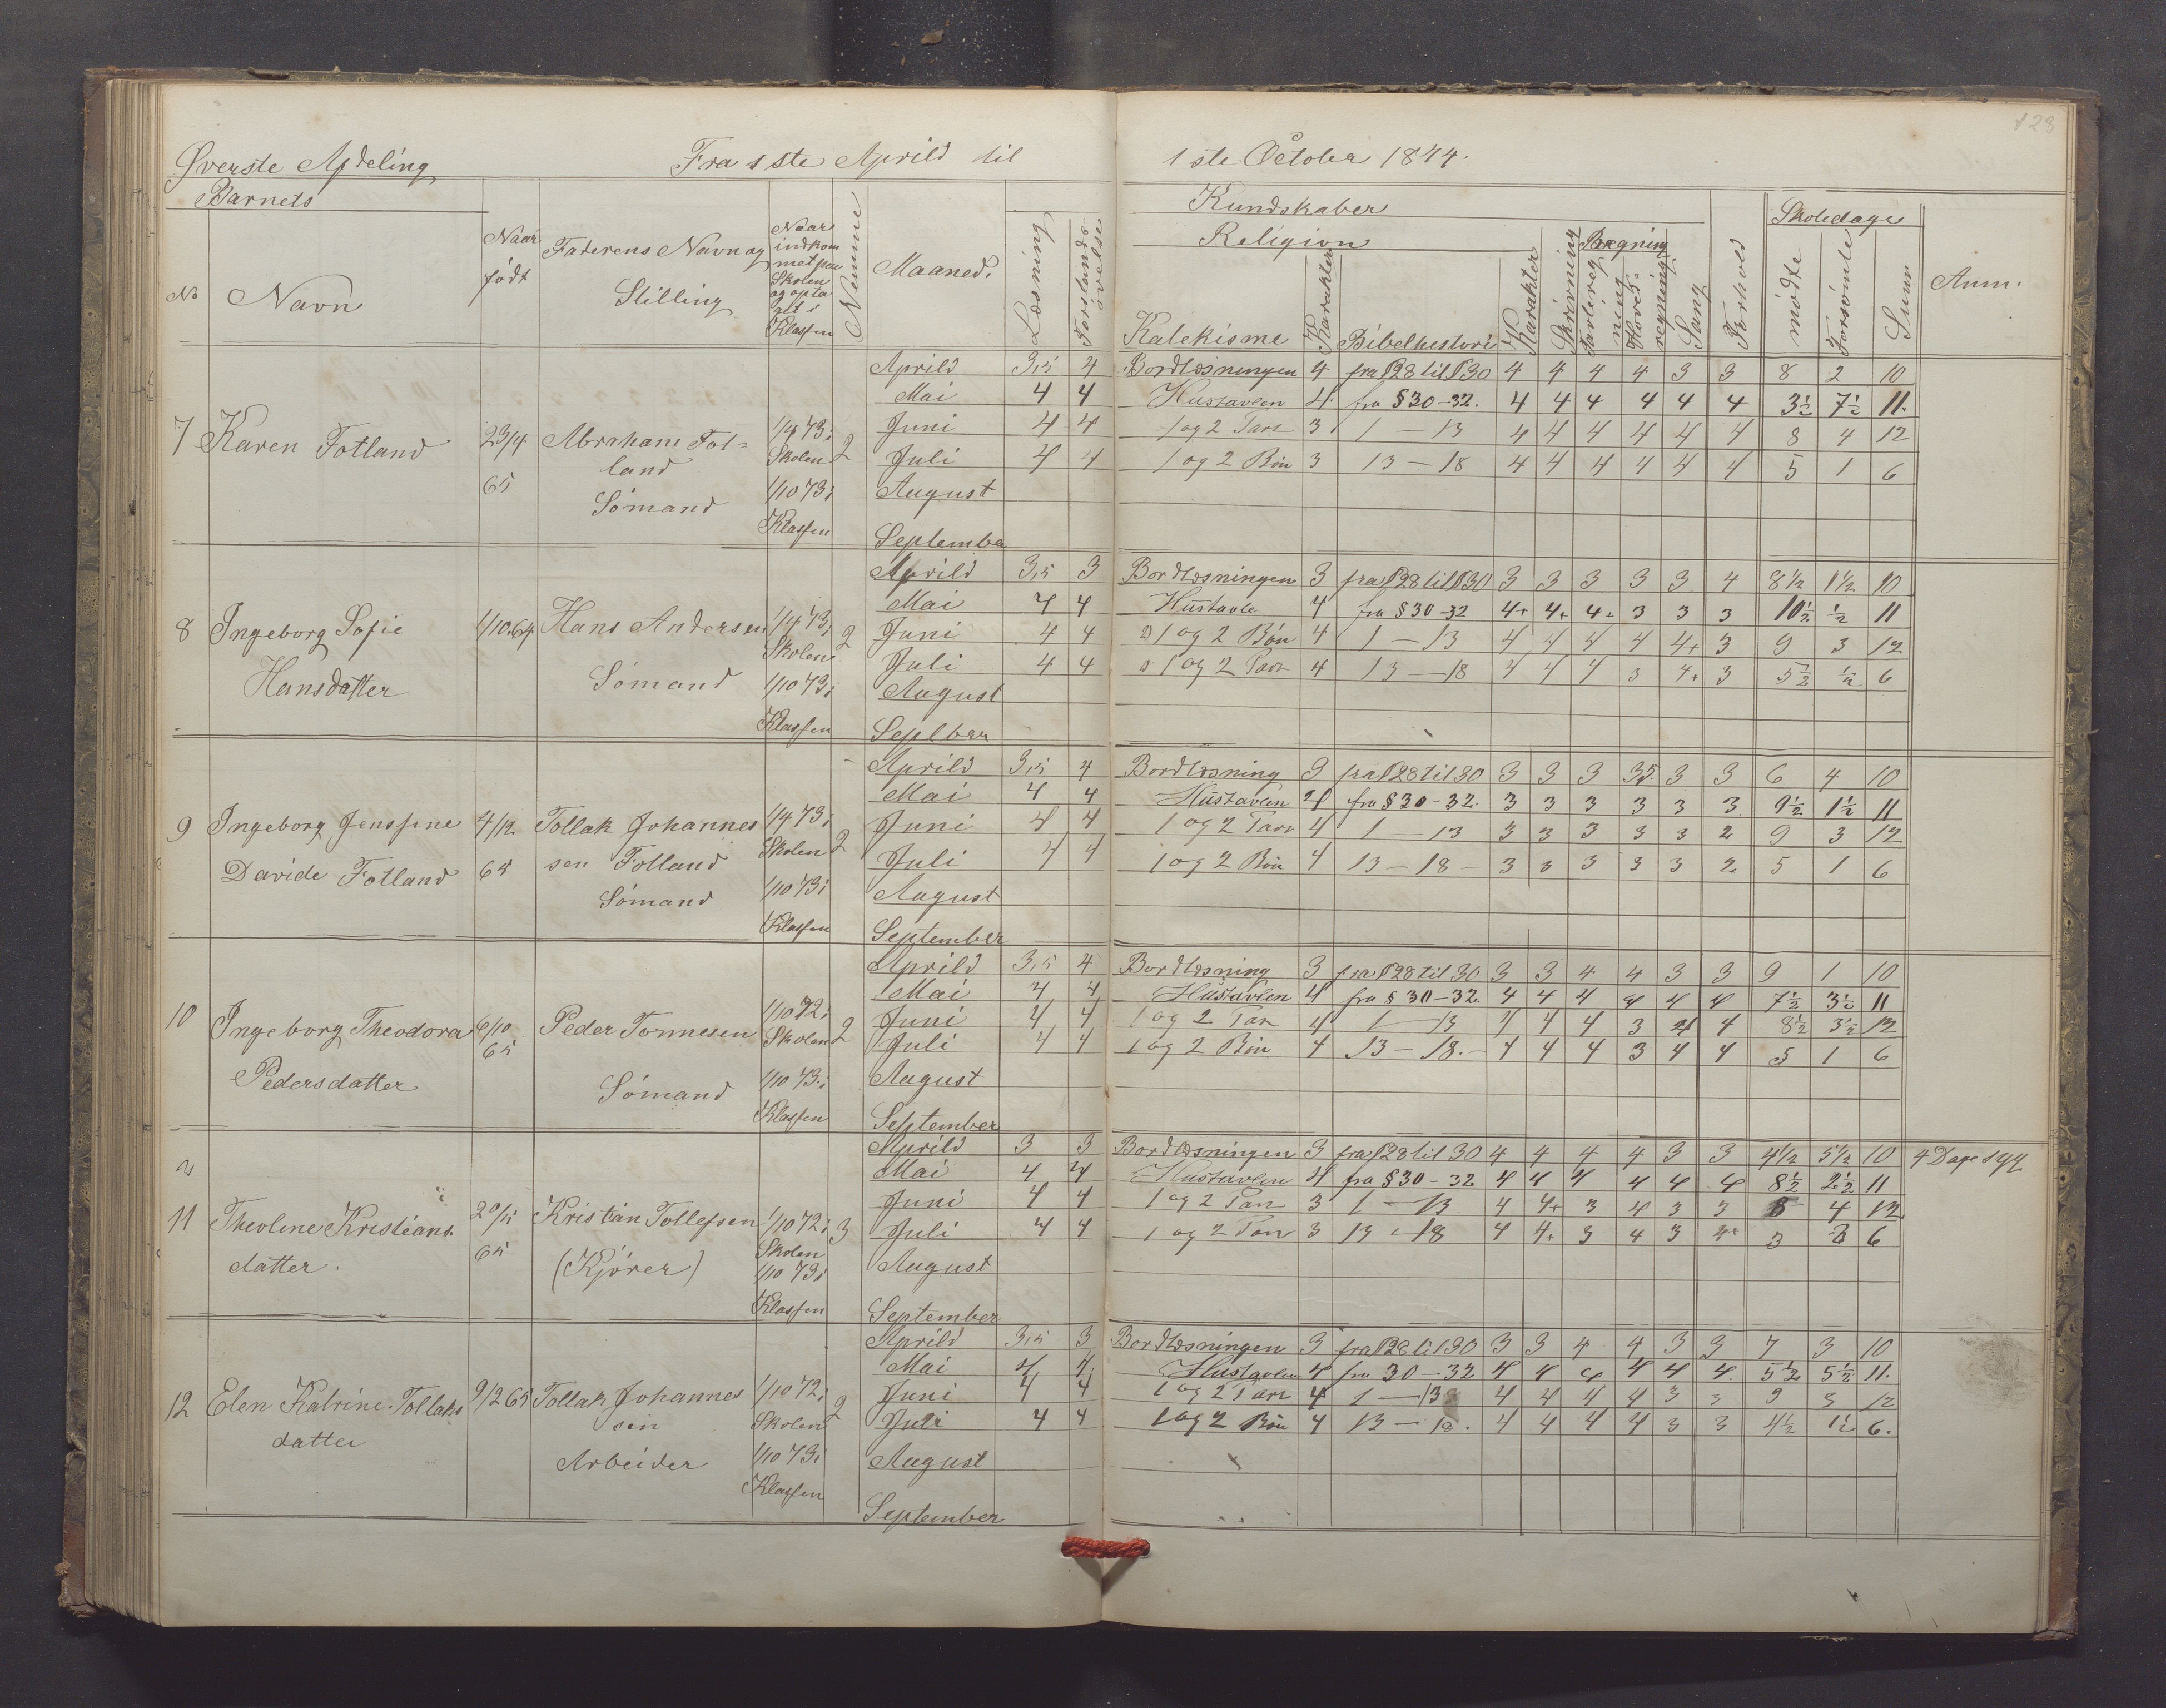 Øverste Afdeling Fra 1ste Aprild til 1ste October 1874.
Barnets Kundskaber Skoledage
No Navn Naar født Faderens Navn og Stilling Naar indkommet paa Skolen og optaget i Klassen Nemme Maaned. Læsning Forstandsøvelse Religion Katekisme Karakter Bibelhestorie Karakter Skrivning Tavleregning Hovedregning Sang Forhold mødte Forsømte Sum Anm.
7 Karen Fotland 23/4 65 Abraham Fotland Sømand 1/4 73 i Skolen 1/10 73 i Klassen 2
Aprild 3,5 4 Bordlæsningen 4 fra § 28 til § 30 4 4 4 4 3 3 8 2 10
Mai 4 4 Hustavlen 4 fra § 30-32. 4 4 4 4 4 4 3½ 7½ 11.
Juni 4 4 1 og 2 Part 3 1-13 4 4 4 4 4 4 8 4 12
Juli 4 4 1 og 2 Bøn 3 13-18 4 4 4 4 4 4 5 1 6
August
September
8 Ingeborg Sofie Hansdatter 1/10 64 Hans Andersen Sømand 1/4 73 i Skolen 1/10 73 i Klassen 2
Aprild 3,5 3 Bordlæsningen 3 fra § 28 til § 30 3 3 3 3 3 4 8½ 1½ 10
Mai 4 4 Hustavle 4 fra § 30-32 4+ 4+ 4+ 3 3 3 10½ ½ 11
Juni 4 4 1 og 2 Bøn 4 1-13 4 4 4 4 4+ 3 9 3 12
Juli 4 4 1 og 2 Part 4 13-18 4 4 4 3 4+ 3 5½ ½ 6
August
Septbar
9 Ingeborg Jenssine Davide Fotland 4/12. 65 Tollak Johannessen Fotland Sømand 1/4 73 i Skolen 1/10 73 i Klassen 2
Aprild 3,5 4 Bordlæsning 3 fra § 28 til 30 3 3 3 3,5. 3 3 6 4 10
Mai 4 4 Hustavlen 4 fra § 30-32. 3 3 3 3 3 3 9½ 1½ 11
Juni 4 4 1 og 2 Part 4 1-13 3 3 3 3 3 2 9 3 12
Juli 4 4 1 og 2 Bøn 4 13-18- 3 3 3 3 3 2 5 1 6
August
September
10 Ingeborg Theodora Pedersdatter 6/10 65 Peder Tønnesen Sømand 1/10 72 i Skolen 1/10 73 i Klassen 2
Aprild 3,5 4 Bordlæsning 3 fra § 28 til 30 3 3 4 4 3 3 9 1 10
Mai 4 4 Hustavlen 4 fra § 30-32. 4 4 4 4 4 4 7½ 3½ 11
Juni 4 4 1 og 2 Part 4 1-13 4 4 4 3 4 4 8½ 3½ 12
Juli 4 4 1 og 2 Bøn 4 13-18.- 4 4 4 3 4 4 5 1 6
August
September
11 Theoline Kristiansdatter. 20/5 65 Kristian Tollefsen (Kjører) 1/10 72 i Skolen 1/10 73 i Klassen 3
Aprild 3 3 Bordlæsningen 3 fra § 28 til 30 4 4 4 4 3 3 4½ 5½ 10 4 Dage syg
Mai 4 4 Hustavlen 4 fra § 30-32 4 4 4 4 4 4 8½ 2½ 11
Juni 4 4 1 og 2 Part 3 1-13 4 4+ 3 4 3 3 8 4 12
Juli 4 4 1 og 2 Part 3 13-18 4 4+ 3 4 3 3 3 3 6
August
September
12 Elen Katrine Tollaksdatter 9/12 65 Tollak Johannessen Arbeider 1/10 72 i Skolen 1/10 73 i Klassen 2
Aprild 3,5 3 Bordlæsningen 3 fra § 28 til 30 3 3 4 4 3 3 7 3 10
Mai 4 4 Hustavlen 4 fra 30-32 4 4 4 4 4 4 5½ 5½ 11.
Juni 4 4 1 og 2 Part 4 1-13 4 4 4 4 3 3 9 3 12
Juli 4 4 1 og 2 Bøn 4 13-18. 4 4 4 4 3 3 4½ 1½ 6.
August
September